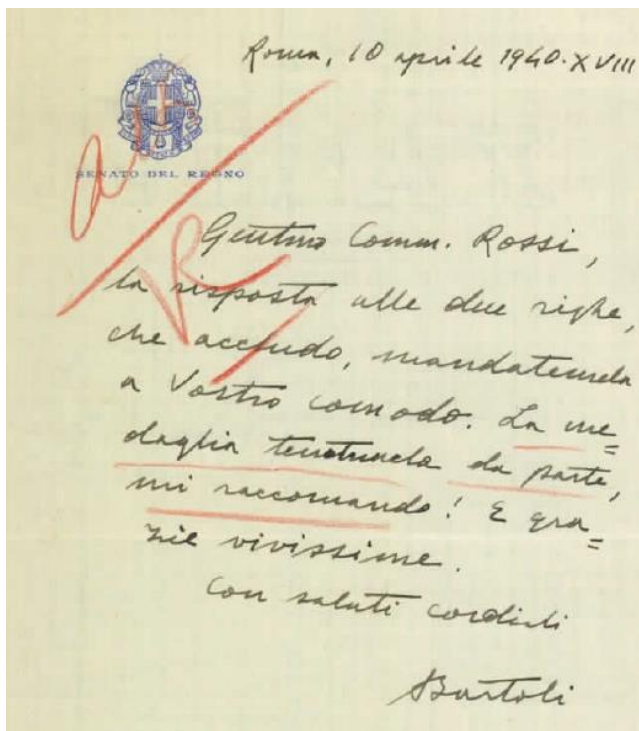 Roma, 10 aprile 1940·XVIII
SENATO DEL REGNO
Comm. Rossi,
la risposta alle due righe,
che accludo, mandatemela
a Vostro comodo. La me=
daglia tenetemela da parte,
mi raccomando! E gra=
zie vivissime.
Con saluti cordiali
Bartoli